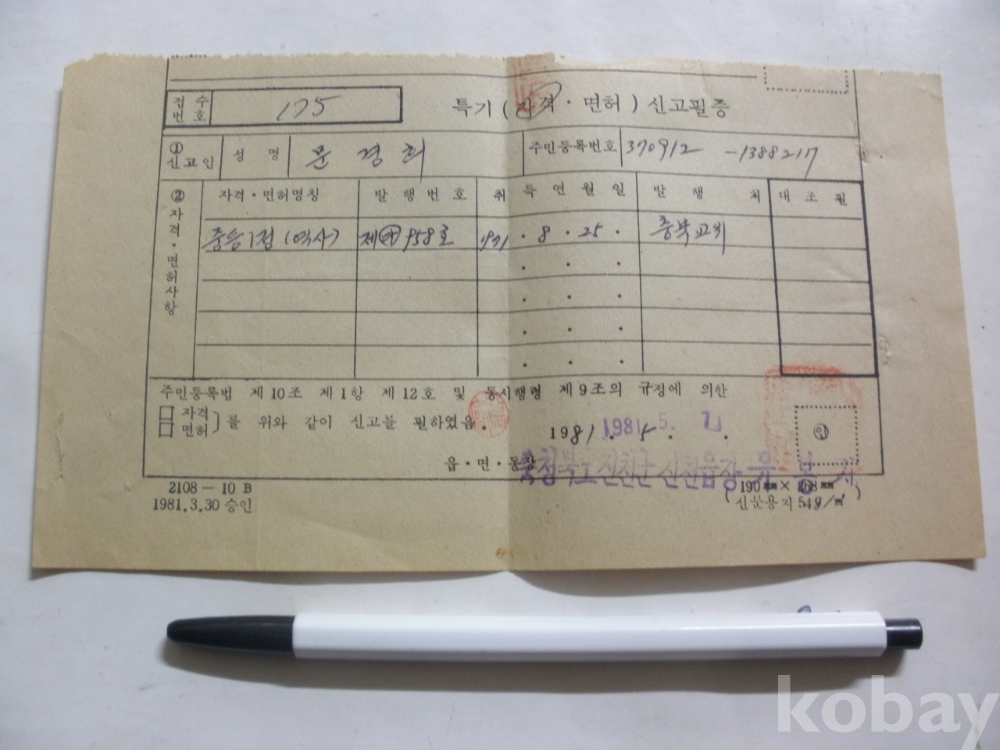 접수번호 175 특기(자격·면허)신고필증
① 신고인 성명 문경희 주민등록번호 370912-1388217
② 자격·면허사항
자격·면허명칭 발행번호 취득연월일 발행처 대조필
중등1정(역사) 제 958호 1971·8·25· 충북교위
주민등록법 제10조 제1항 제12호 및 동시행령 제9조의 규정에 의한
□ 자격
□ 면허 }를 위와 같이 신고를 필하였음.
1981. 5. 7.
1981.5.
읍·면·동장 충청북도 진천군 진천읍장 유
인
2108-10 B
1981.3.30 승인
(190㎜×268㎜
신문용지 54g/㎡)
kobay